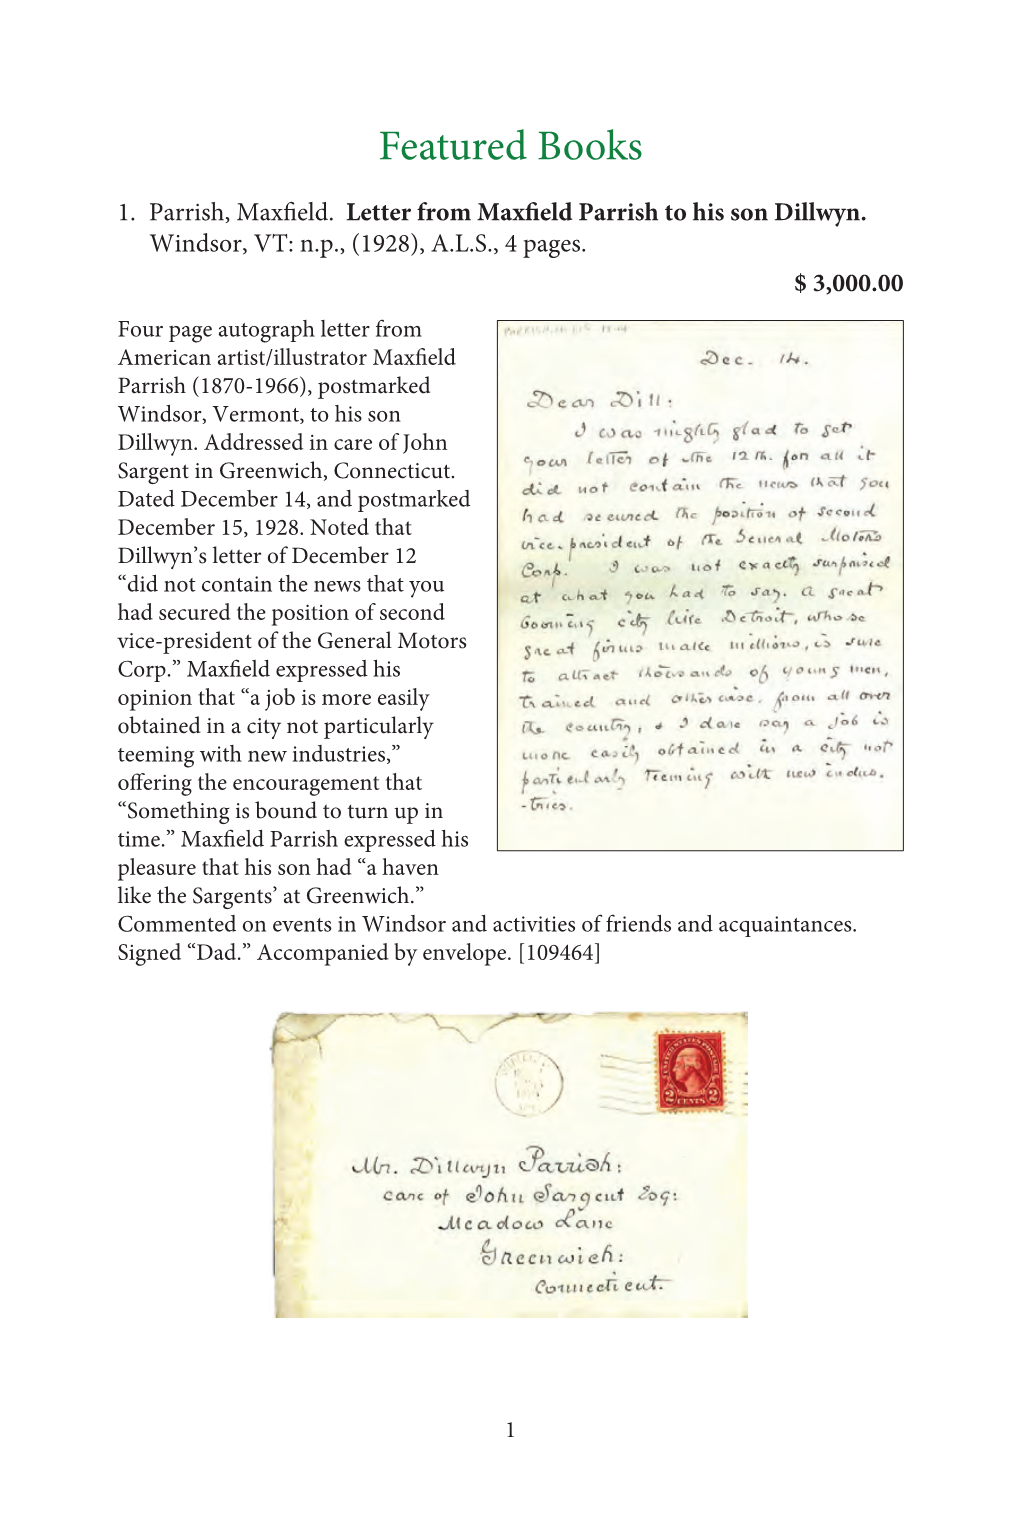 Featured Books
1. Parrish, Maxfield. Letter from Maxfield Parrish to his son Dillwyn.
Windsor, VT: n.p., (1928), A.L.S., 4 pages.
$ 3,000.00
Four page autograph letter from
American artist/illustrator Maxfield
Parrish (1870-1966), postmarked
Windsor, Vermont, to his son
Dillwyn. Addressed in care of John
Sargent in Greenwich, Connecticut.
Dated December 14, and postmarked
December 15, 1928. Noted that
Dillwyn’s letter of December 12
“did not contain the news that you
had secured the position of second
vice-president of the General Motors
Corp.” Maxfield expressed his
opinion that “a job is more easily
obtained in a city not particularly
teeming with new industries,”
offering the encouragement that
“Something is bound to turn up in
time.” Maxfield Parrish expressed his
pleasure that his son had “a haven
like the Sargents’ at Greenwich.”
Commented on events in Windsor and activities of friends and acquaintances.
Signed “Dad.” Accompanied by envelope. [109464]
Dec. 14.
Dear Dill:
I was mighty glad to get
your letter of the 12th. for all it
did not contain the news that you
had secured the position of second
vice-president of the General Motors
Corp. I was not exactly surprised
at what you had to say. A great
booming city like Detroit, whose
great firms make millions, is sure
to attract thousands of young men,
trained and otherwise, from all over
the country, & I dare say a job is
more easily obtained in a city not
particularly teeming with new indus-
-tries.
UNITED STATES POSTAGE
2 CENTS 2
Mr. Dillwyn Parrish:
care of John Sargent Esq:
Meadow Lane
Greenwich:
Connecticut.
1